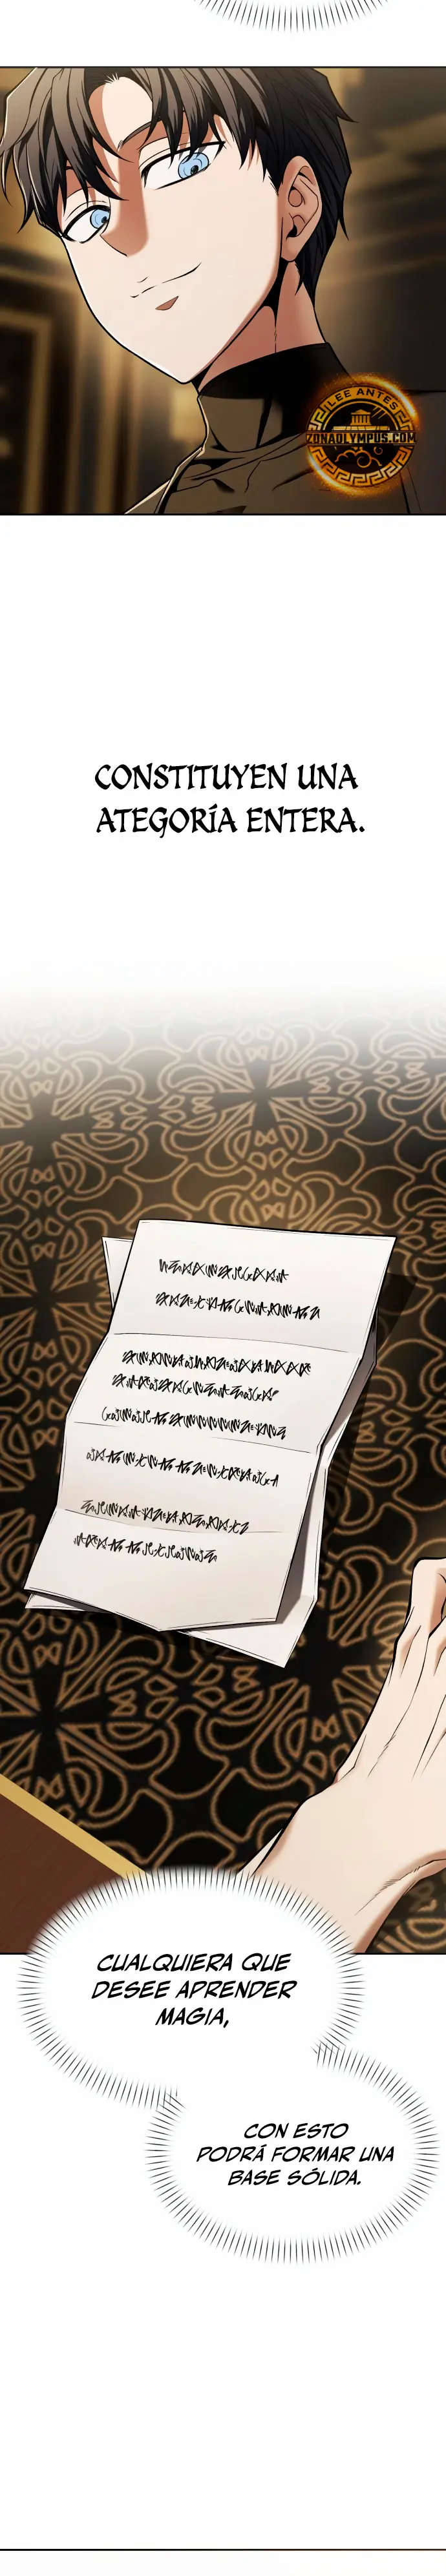 LEE ANTES
ZONAOLYMPUS.COM
CONSTITUYEN UNA
ATEGORÍA ENTERA.
CUALQUIERA QUE
DESEE APRENDER
MAGIA,
CON ESTO
PODRÁ FORMAR UNA
BASE SÓLIDA.